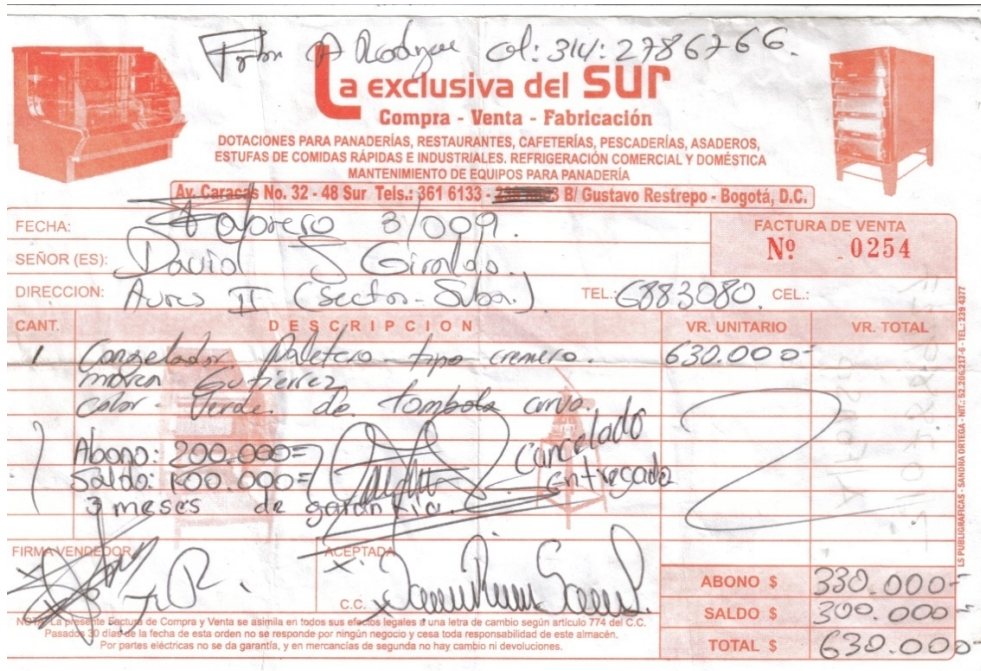 cel: 314: 2786766.
La exclusiva del SUR
Compra - Venta - Fabricación
DOTACIONES PARA PANADERÍAS, RESTAURANTES, CAFETERÍAS, PESCADERÍAS, ASADEROS,
ESTUFAS DE COMIDAS RÁPIDAS E INDUSTRIALES. REFRIGERACIÓN COMERCIAL Y DOMÉSTICA
MANTENIMIENTO DE EQUIPOS PARA PANADERÍA
Av. Caracas No. 32 - 48 Sur Tels.: 361 6133 - B/ Gustavo Restrepo - Bogotá, D.C.
FECHA: Febrero 3/009.
FACTURA DE VENTA
Nº 0254
SEÑOR (ES): David S Giraldo.
DIRECCION: Aures II (Sector - Suba.) TEL.: 6883080 CEL.:
CANT. DESCRIPCION VR. UNITARIO VR. TOTAL
1 Congelador Paletero tipo cremero. 630.000-
marca Gutierrez
color - Verde. de tombola curvo.
Abono: 200.000=
Cancelado
Saldo: 100.000=
Entregado
3 meses de garantia.
FIRMA VENDEDOR
ACEPTADA
C.C.
ABONO $ 330.000-
SALDO $ 300.000
TOTAL $ 630.000
NOTA: La presente Factura de Compra y Venta se asimila en todos sus efectos legales a una letra de cambio según artículo 774 del C.C.
Pasados 30 días de la fecha de esta orden no se responde por ningún negocio y cesa toda responsabilidad de este almacén.
Por partes eléctricas no se da garantía, y en mercancías de segunda no hay cambio ni devoluciones.
LS PUBLIGRAFICAS - SANDRA ORTEGA - NIT.: 52.206.217-6 - TEL.: 239 4377